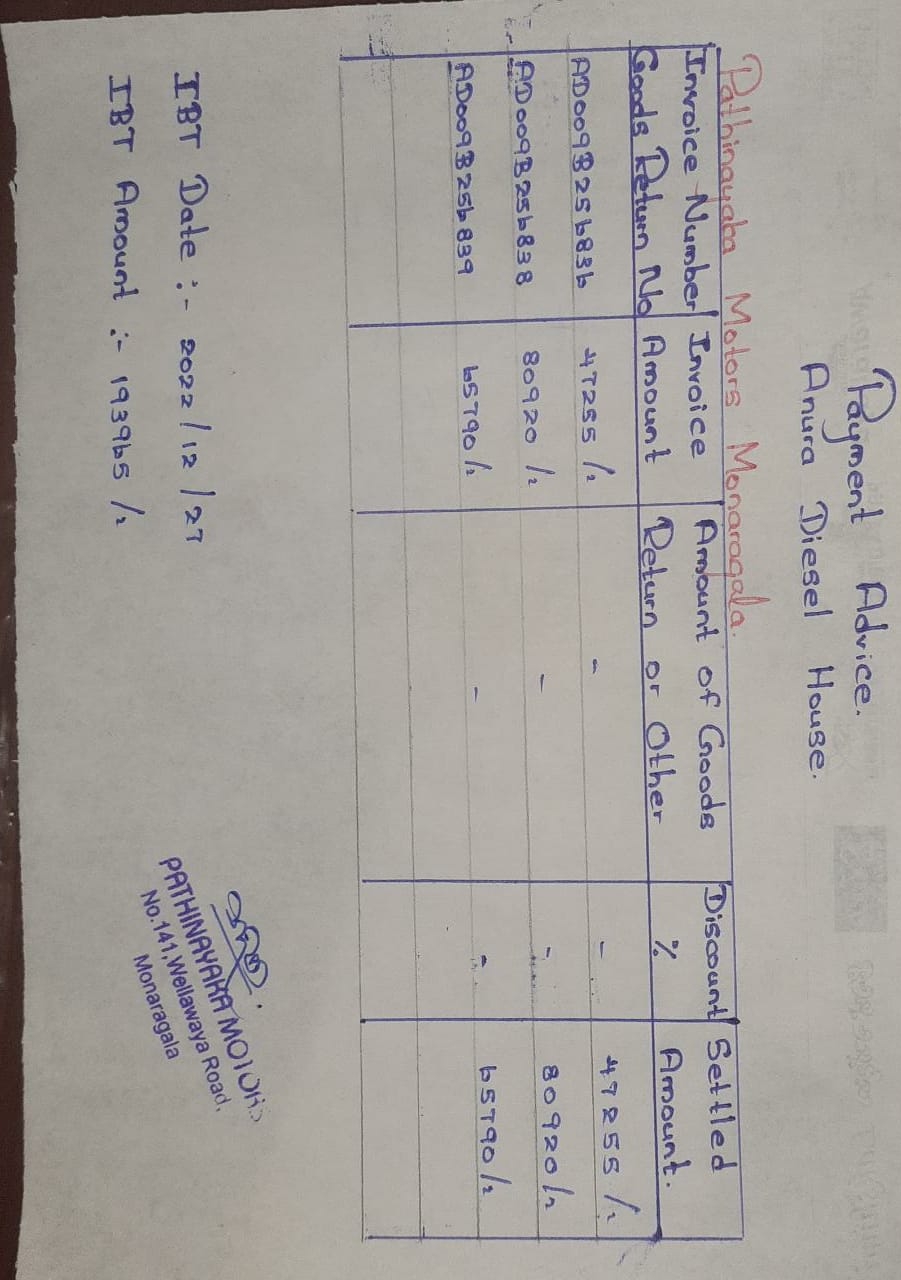 Payment Advice.
Anura Diesel House.
Pathinayaka Motors Monaragala.
Invoice Number Goods Return No | Invoice Amount | Amount of Goods Return or Other | Discount % | Settled Amount.
AD009B256836 | 47255/= | - | - | 47255/=
AD009B256838 | 80920/= | - | - | 80920/=
AD009B256839 | 65790/= | - | - | 65790/=
IBT Date :- 2022/12/27
IBT Amount :- 193965/=
PATHINAYAKA MOTORS
No.141,Wellawaya Road,
Monaragala